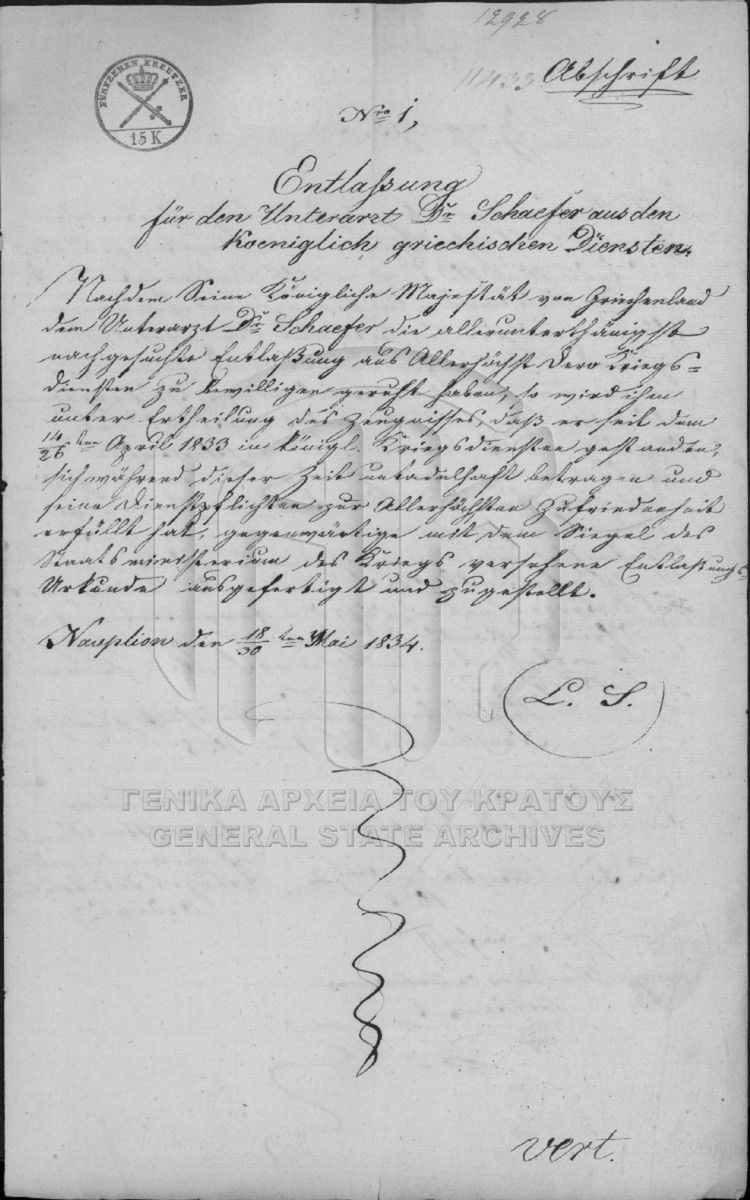 12928
11433 Abschrift
FÜNFZEHEN KREUTZER
15 K
Nro 1,
Entlaßung
für den Unterarzt Dr Schaefer aus den
Koeniglich griechischen Diensten.
Nachdem Seine Königliche Majestät von Griechenland
dem Unterarzt Dr Schaefer die allerunterthänigst
nachgesuchte Entlaßung aus Allerhöchst Dero Kriegs-
diensten zu bewilligen geruht haben, so wird ihm
unter Ertheilung des Zeugnisses, daß er seit dem
14/26ten April 1833 in königl. Kriegsdiensten gestanden,
sich während dieser Zeit untadelhaft betragen und
seine Dienstpflichten zur Allerhöchsten Zufriedenheit
erfüllt hat, gegenwärtige mit dem Siegel des
Staatsministerium des Kriegs versehene Entlaßungs-
Urkunde ausgefertigt und zugestellt.
Nauplion den 18/30ten Mai 1834.
L. S.
ΓΕΝΙΚΑ ΑΡΧΕΙΑ ΤΟΥ ΚΡΑΤΟΥΣ
GENERAL STATE ARCHIVES
vert.